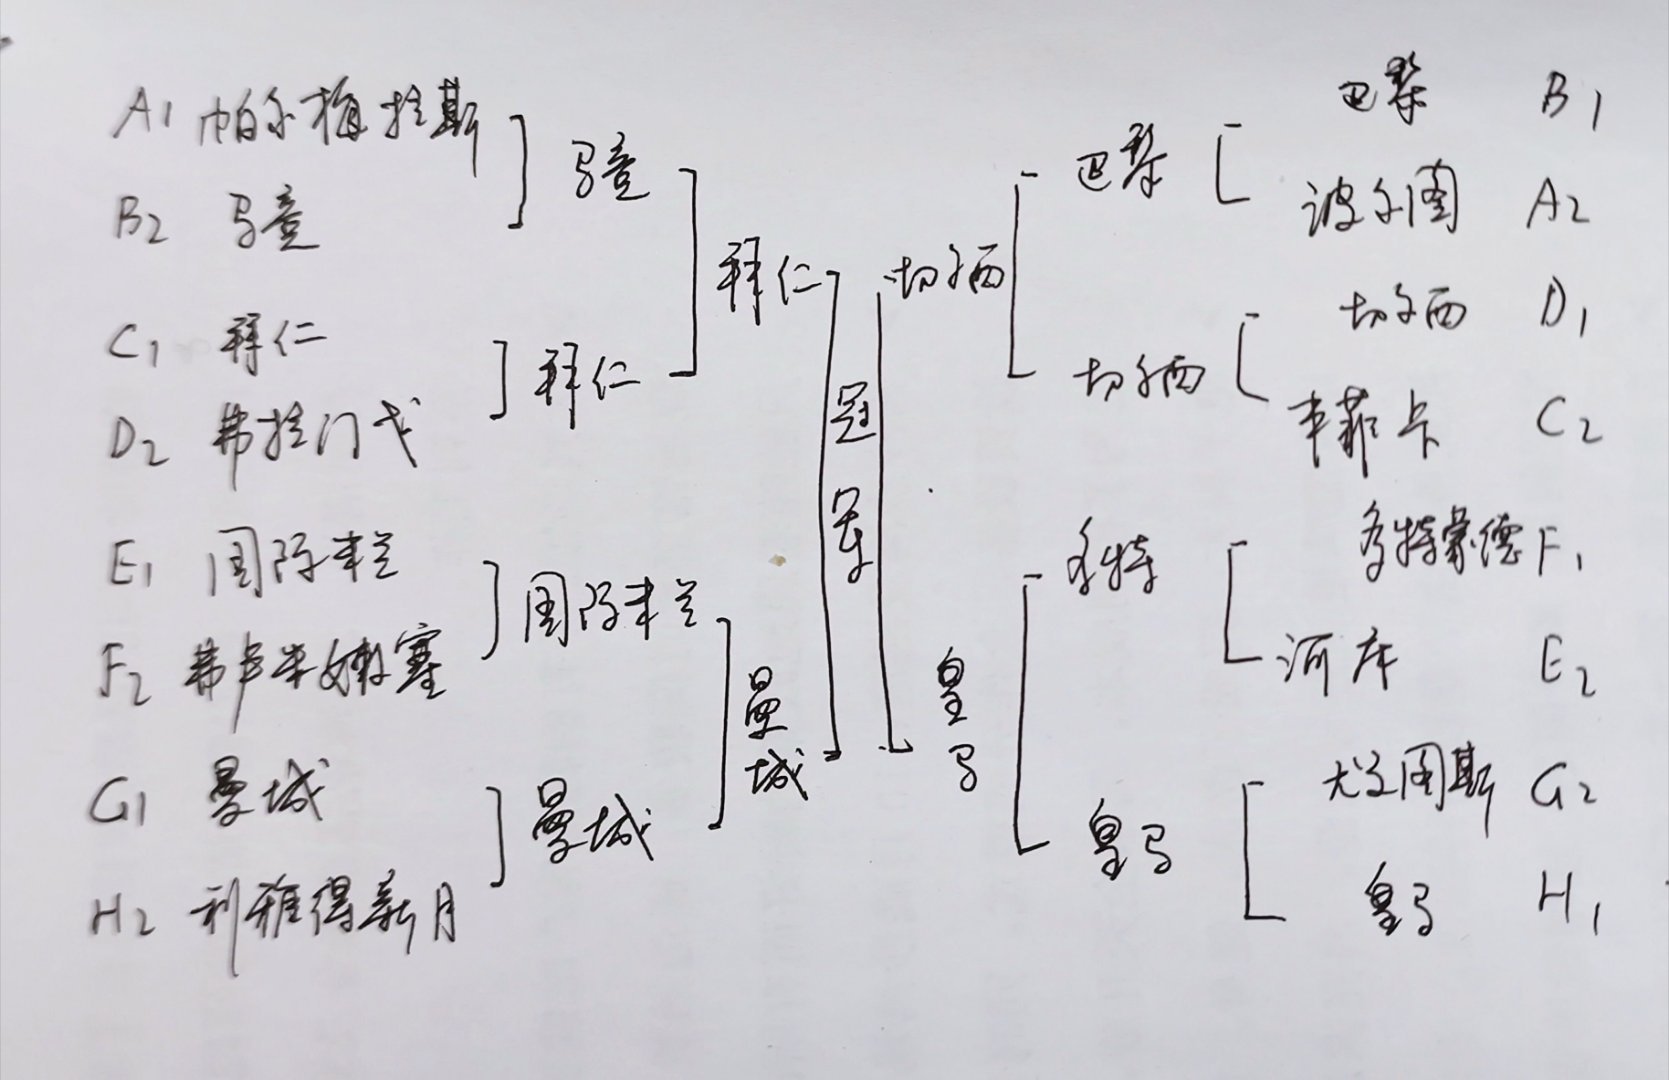 A1 帕尔梅拉斯
B2 马竞
C1 拜仁
D2 弗拉门戈
E1 国际米兰
F2 弗卢米嫩塞
G1 曼城
H2 利雅得新月
马竞
拜仁
国际米兰
曼城
拜仁
曼城
冠军
切尔西
皇马
巴黎
切尔西
多特
皇马
巴黎 B1
波尔图 A2
切尔西 D1
本菲卡 C2
多特蒙德 F1
河床 E2
尤文图斯 G2
皇马 H1